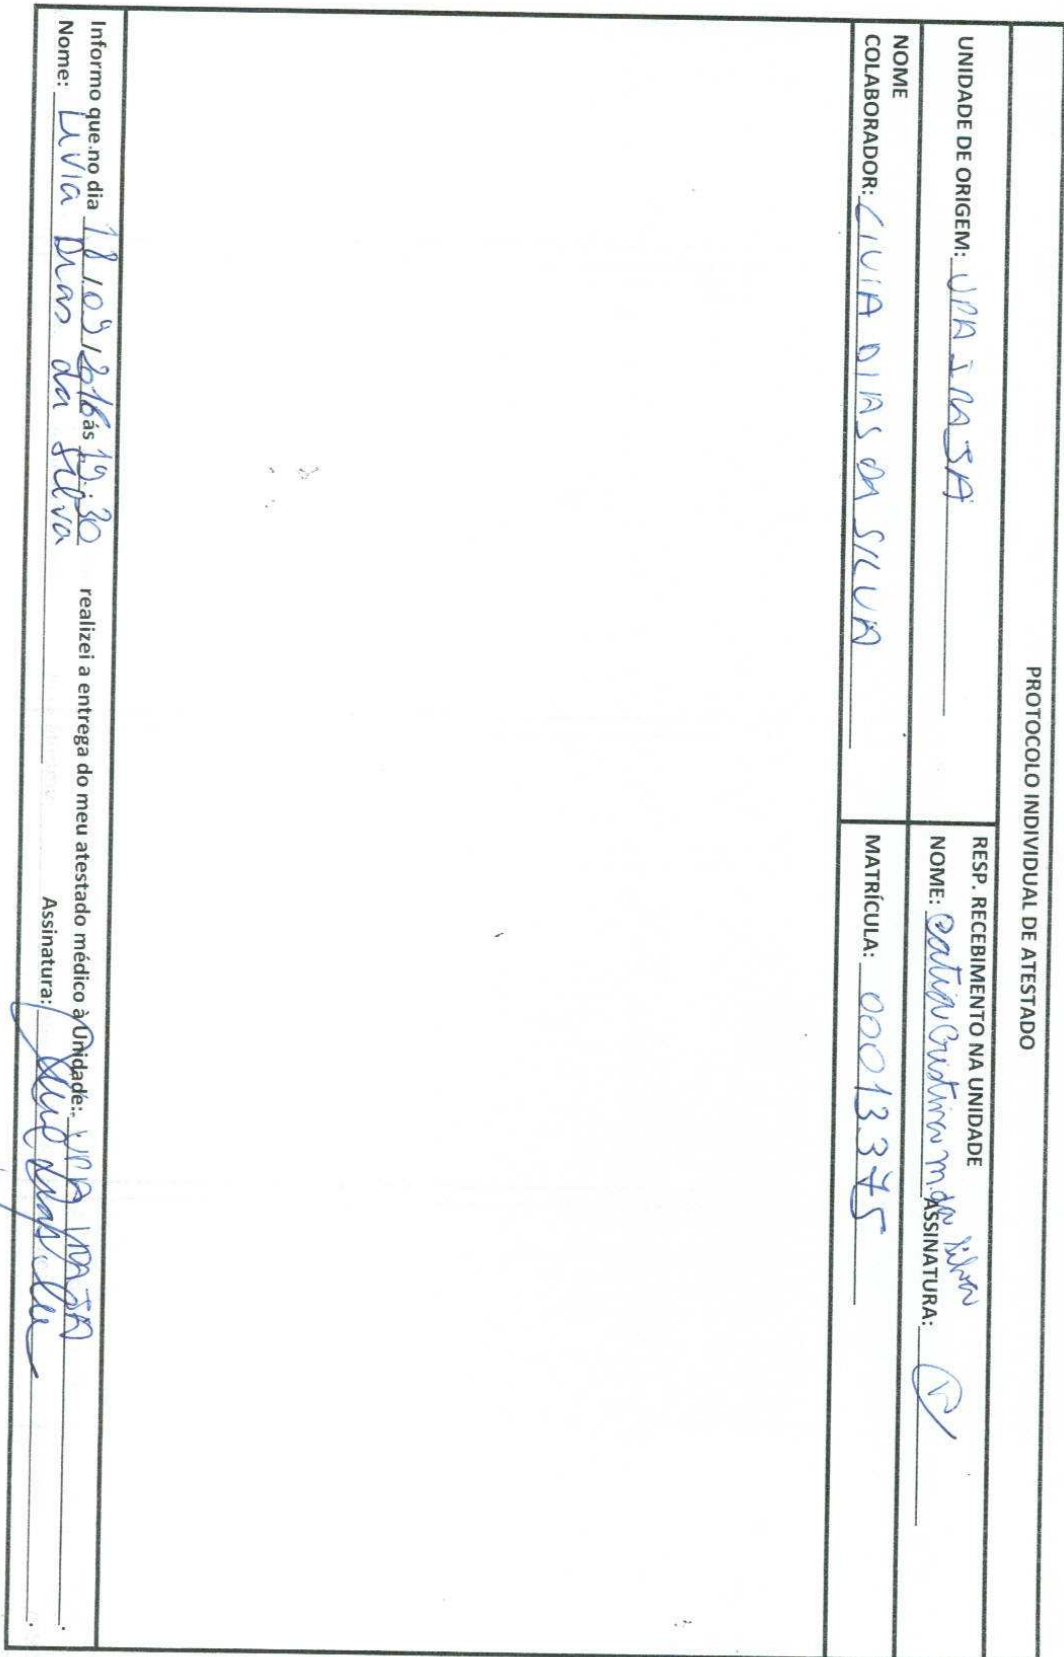 PROTOCOLO INDIVIDUAL DE ATESTADO
UNIDADE DE ORIGEM: UPA IRAJA
RESP. RECEBIMENTO NA UNIDADE
NOME: Catia Cristina m. da Silva ASSINATURA:
NOME
COLABORADOR: LIVIA DIAS DA SILVA
MATRÍCULA: 00013375
Informo que no dia 18/09/2016 ás 19:30 realizei a entrega do meu atestado médico à Unidade: UPA IRAJA.
Nome: Livia Dias da Silva Assinatura: